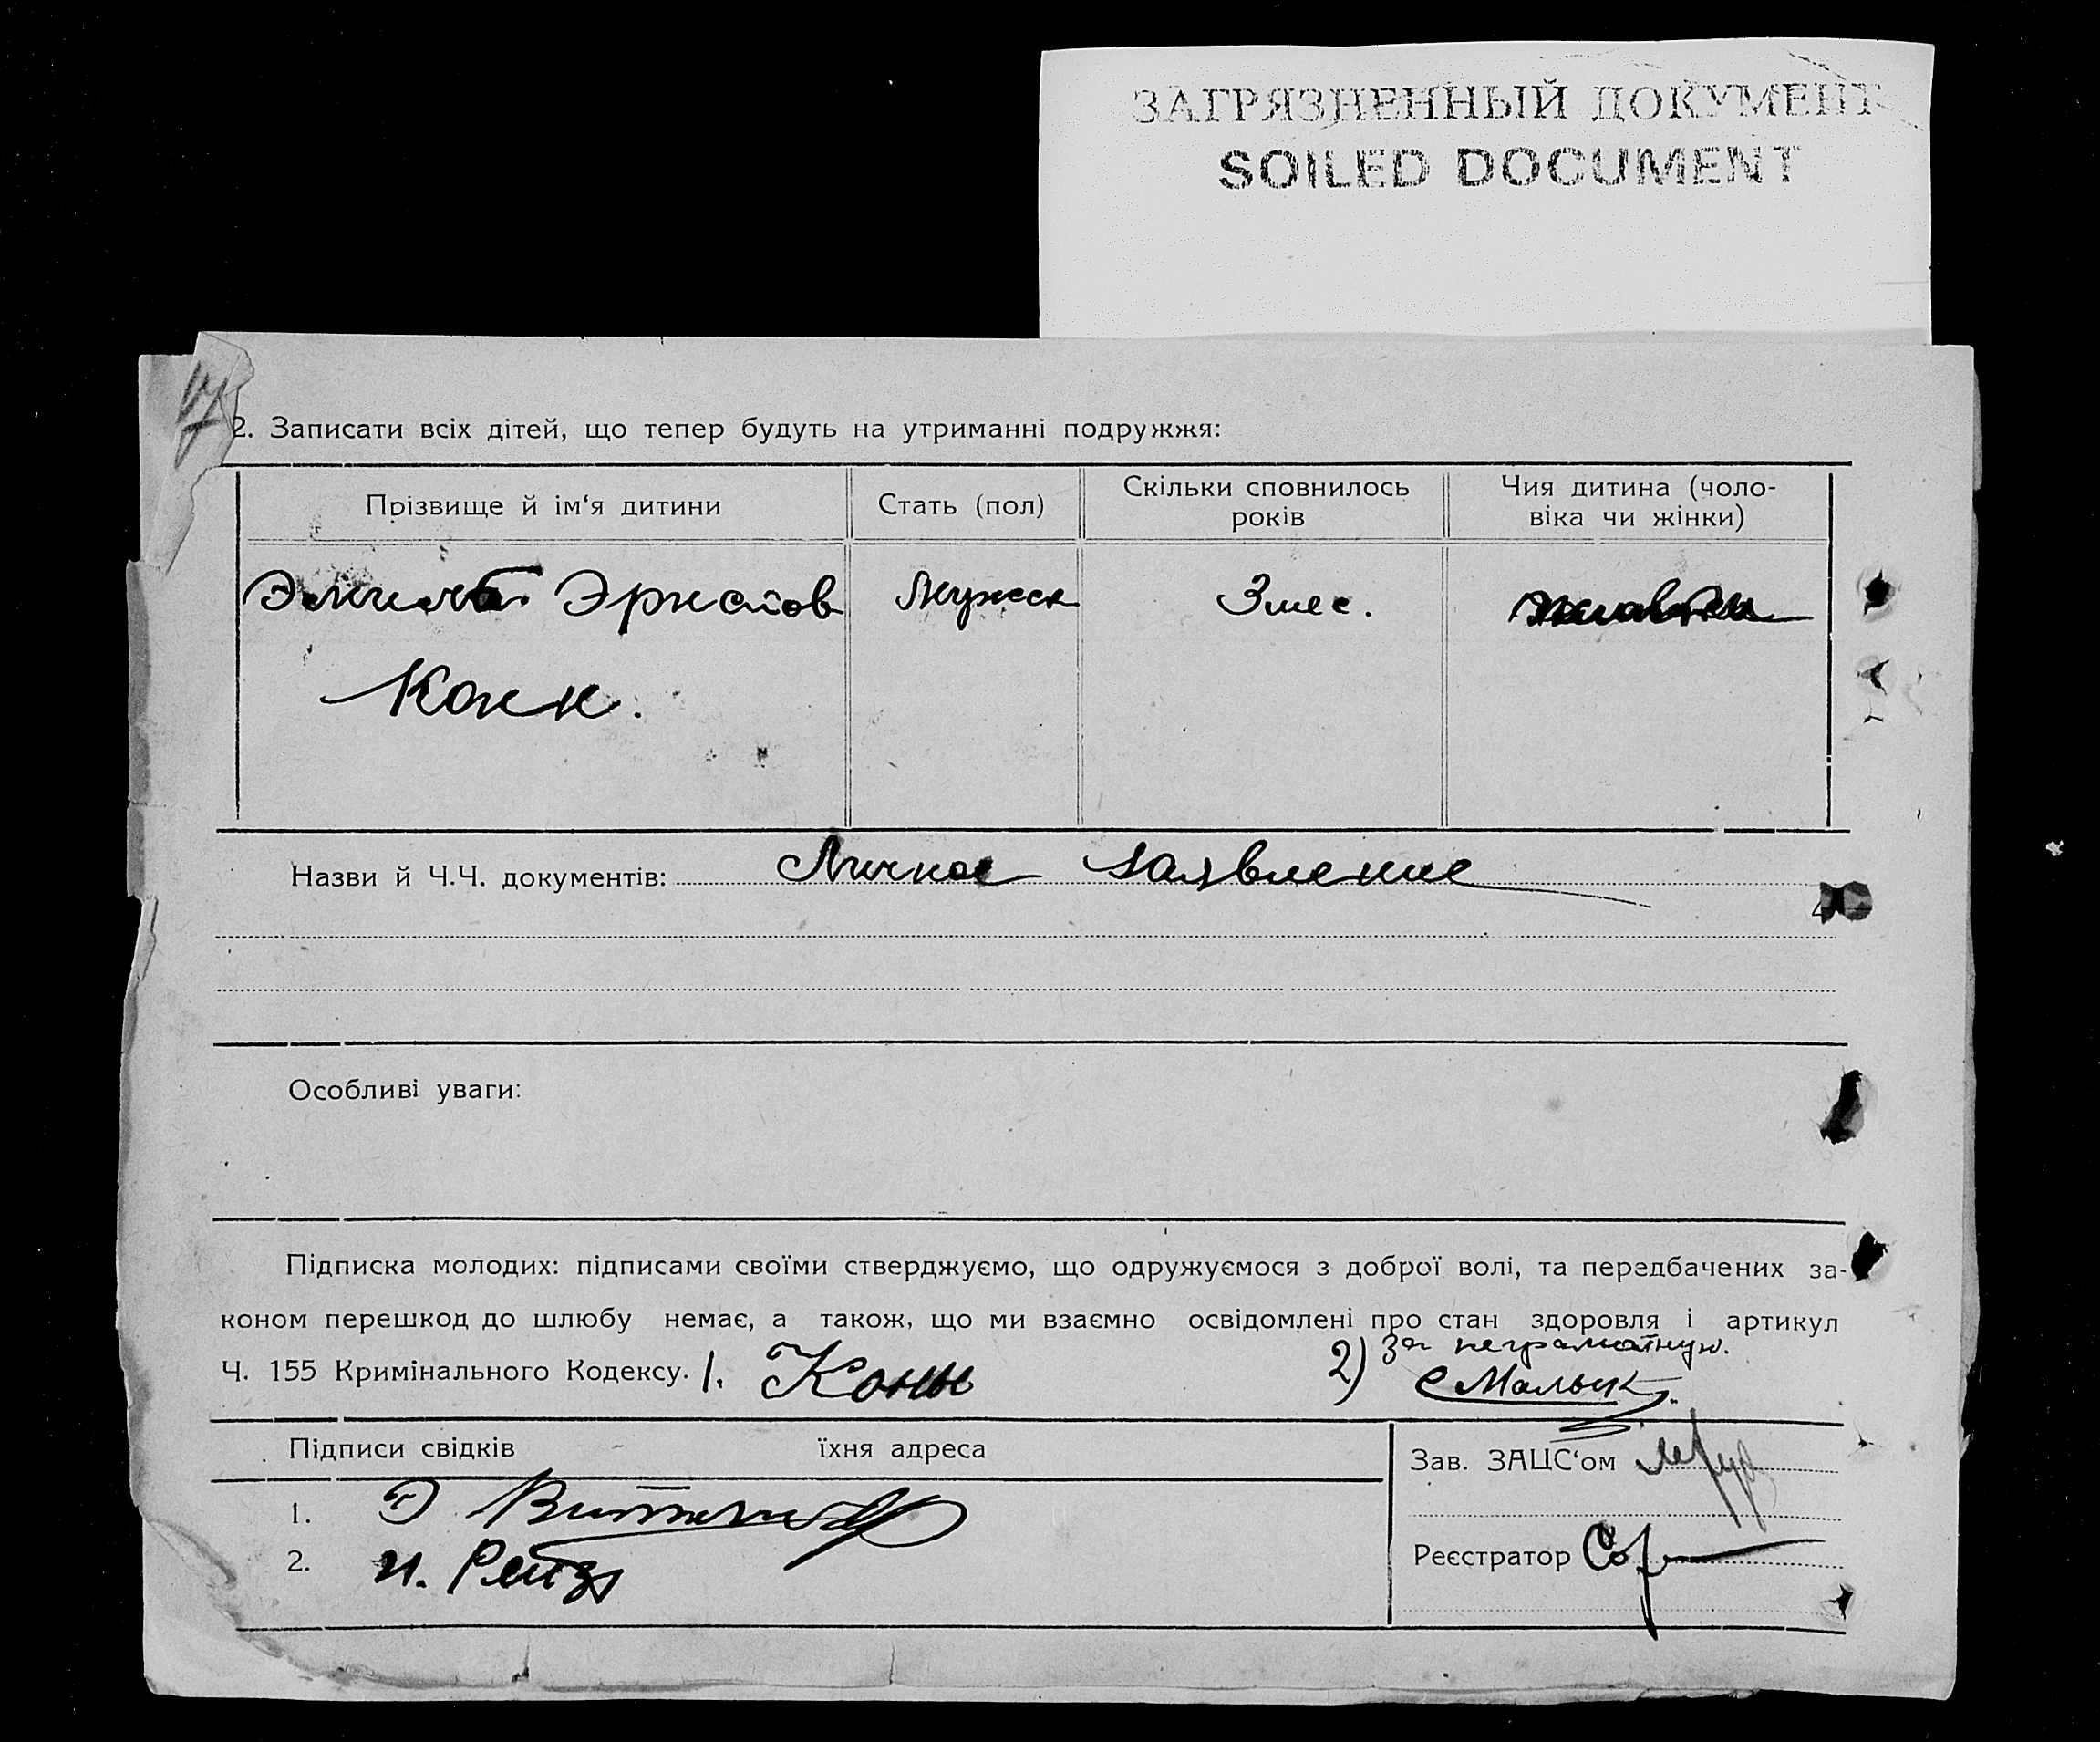 ЗАГРЯЗНЕННЫЙ ДОКУМЕНТ
SOILED DOCUMENT
2. Записати всіх дітей, що тепер будуть на утриманні подружжя:
Прізвище й ім‘я дитини Стать (пол) Скільки сповнилось років Чия дитина (чоловіка чи жінки)
Эмиль Эрнстов Мужск 3 мес.
Конн.
Назви й Ч.Ч. документів: Личное заявление
Особливі уваги:
Підписка молодих: підписами своїми стверджуємо, що одружуємося з доброї волі, та передбачених за-
коном перешкод до шлюбу немає, а також, що ми взаємно освідомлені про стан здоровля і артикул
2) За неграмотную.
Ч. 155 Кримінального Кодексу. 1.
Підписи свідків їхня адреса
Зав. ЗАЦС‘ом
1. Э
2. И.
Реєстратор